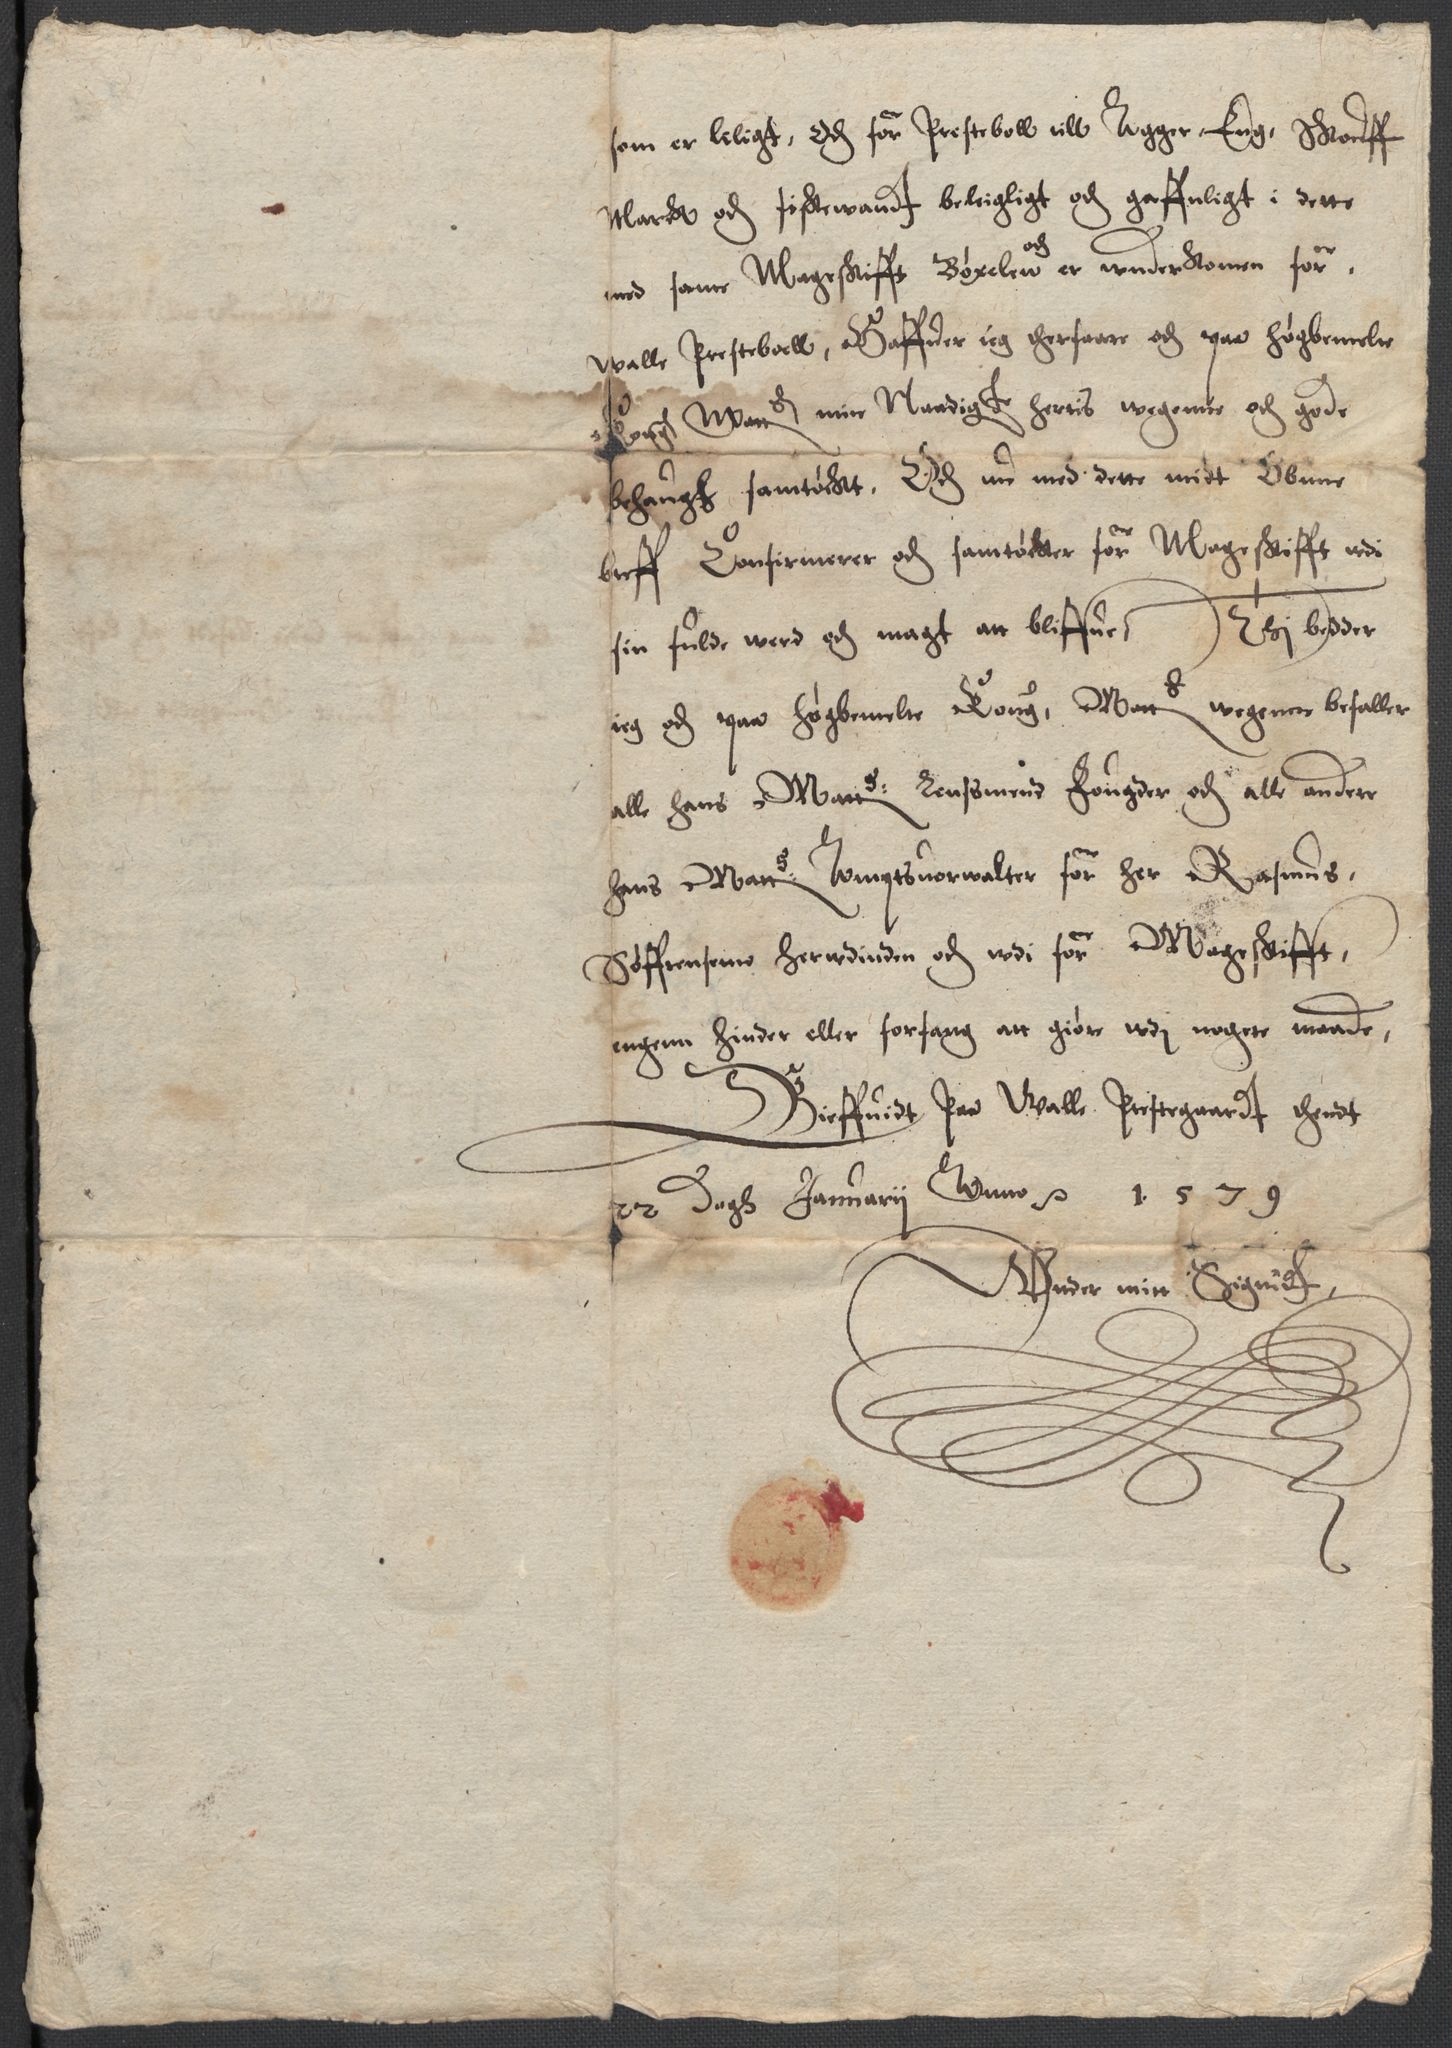 som er leligt, Och for Presteboll till Agger, Eng, Skouff
Marck och fiskewandt beleigligt och gaffnligt i dette
med samme Mageskifft Bøxelew och er wnderkomen for
Walle Presteboell, Haffuer ieg therfaare och paa høgbemelte
Kong Matts mine Naadigste herris wegenne och gode
behaugh samtøckt, Och nu med dette midt Obnne
breff Confirmerer och samtøcker for Mageskifft wdi
sin fulde werd och magt att bliffue, Thj bedder
ieg och paa høgbemelte Kong, Matts wegenne befaller
alle hans Matts: Lensmend Fougder och alle andere
hans Matts: Ampts uorwalter for her Rasmus,
Søffrensenn herwdinden och wdi for Mageskifft,
ingenn hinder eller forfang att giøre wdj nogere maade,
Gieffuidt Paa Walle Prestegaardt thendt
22 Dagh Januarij Anno 1579
Wnder mitt Signett,